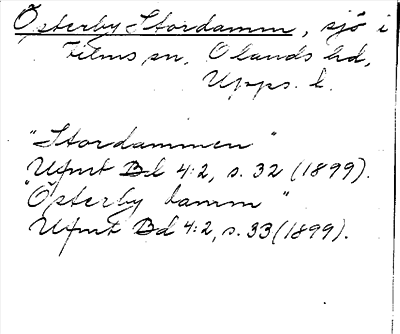 Österby Stordamm, sjö i
Films sn, Olands hd,
Upps. l.
"Stordammen"
Ufmt Bd 4:2, s. 32 (1899).
"Österby damm"
Ufmt Bd 4:2, s. 33 (1899).